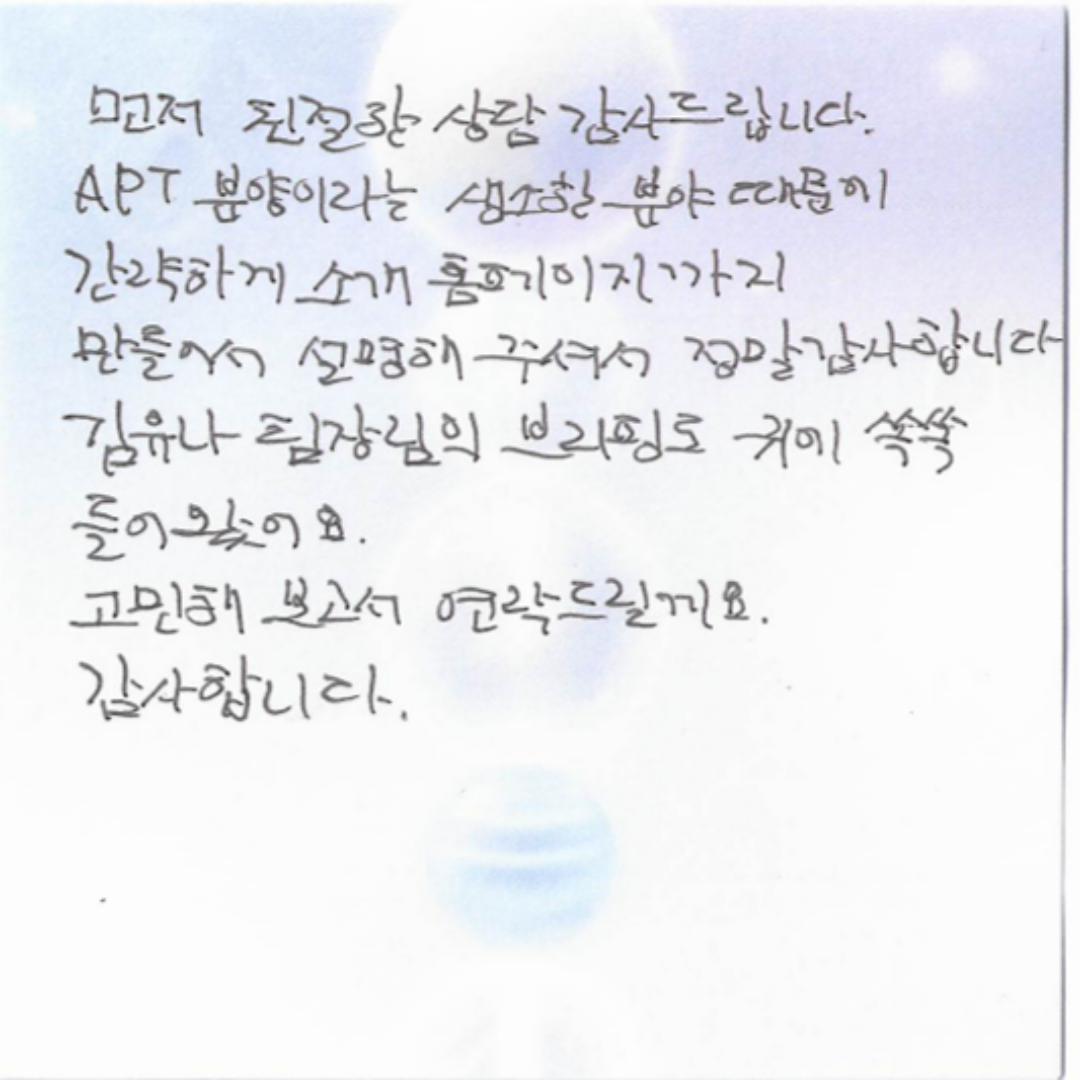 먼저 친절한 상담 감사드립니다.
APT 분양이라는 생소한 분야 때문에
간략하게 소개 홈페이지까지
만들어서 설명해 주셔서 정말감사합니다
김유나 팀장님의 브리핑도 귀에 쏙쏙
들어왔어요.
고민해 보고서 연락드릴게요.
감사합니다.